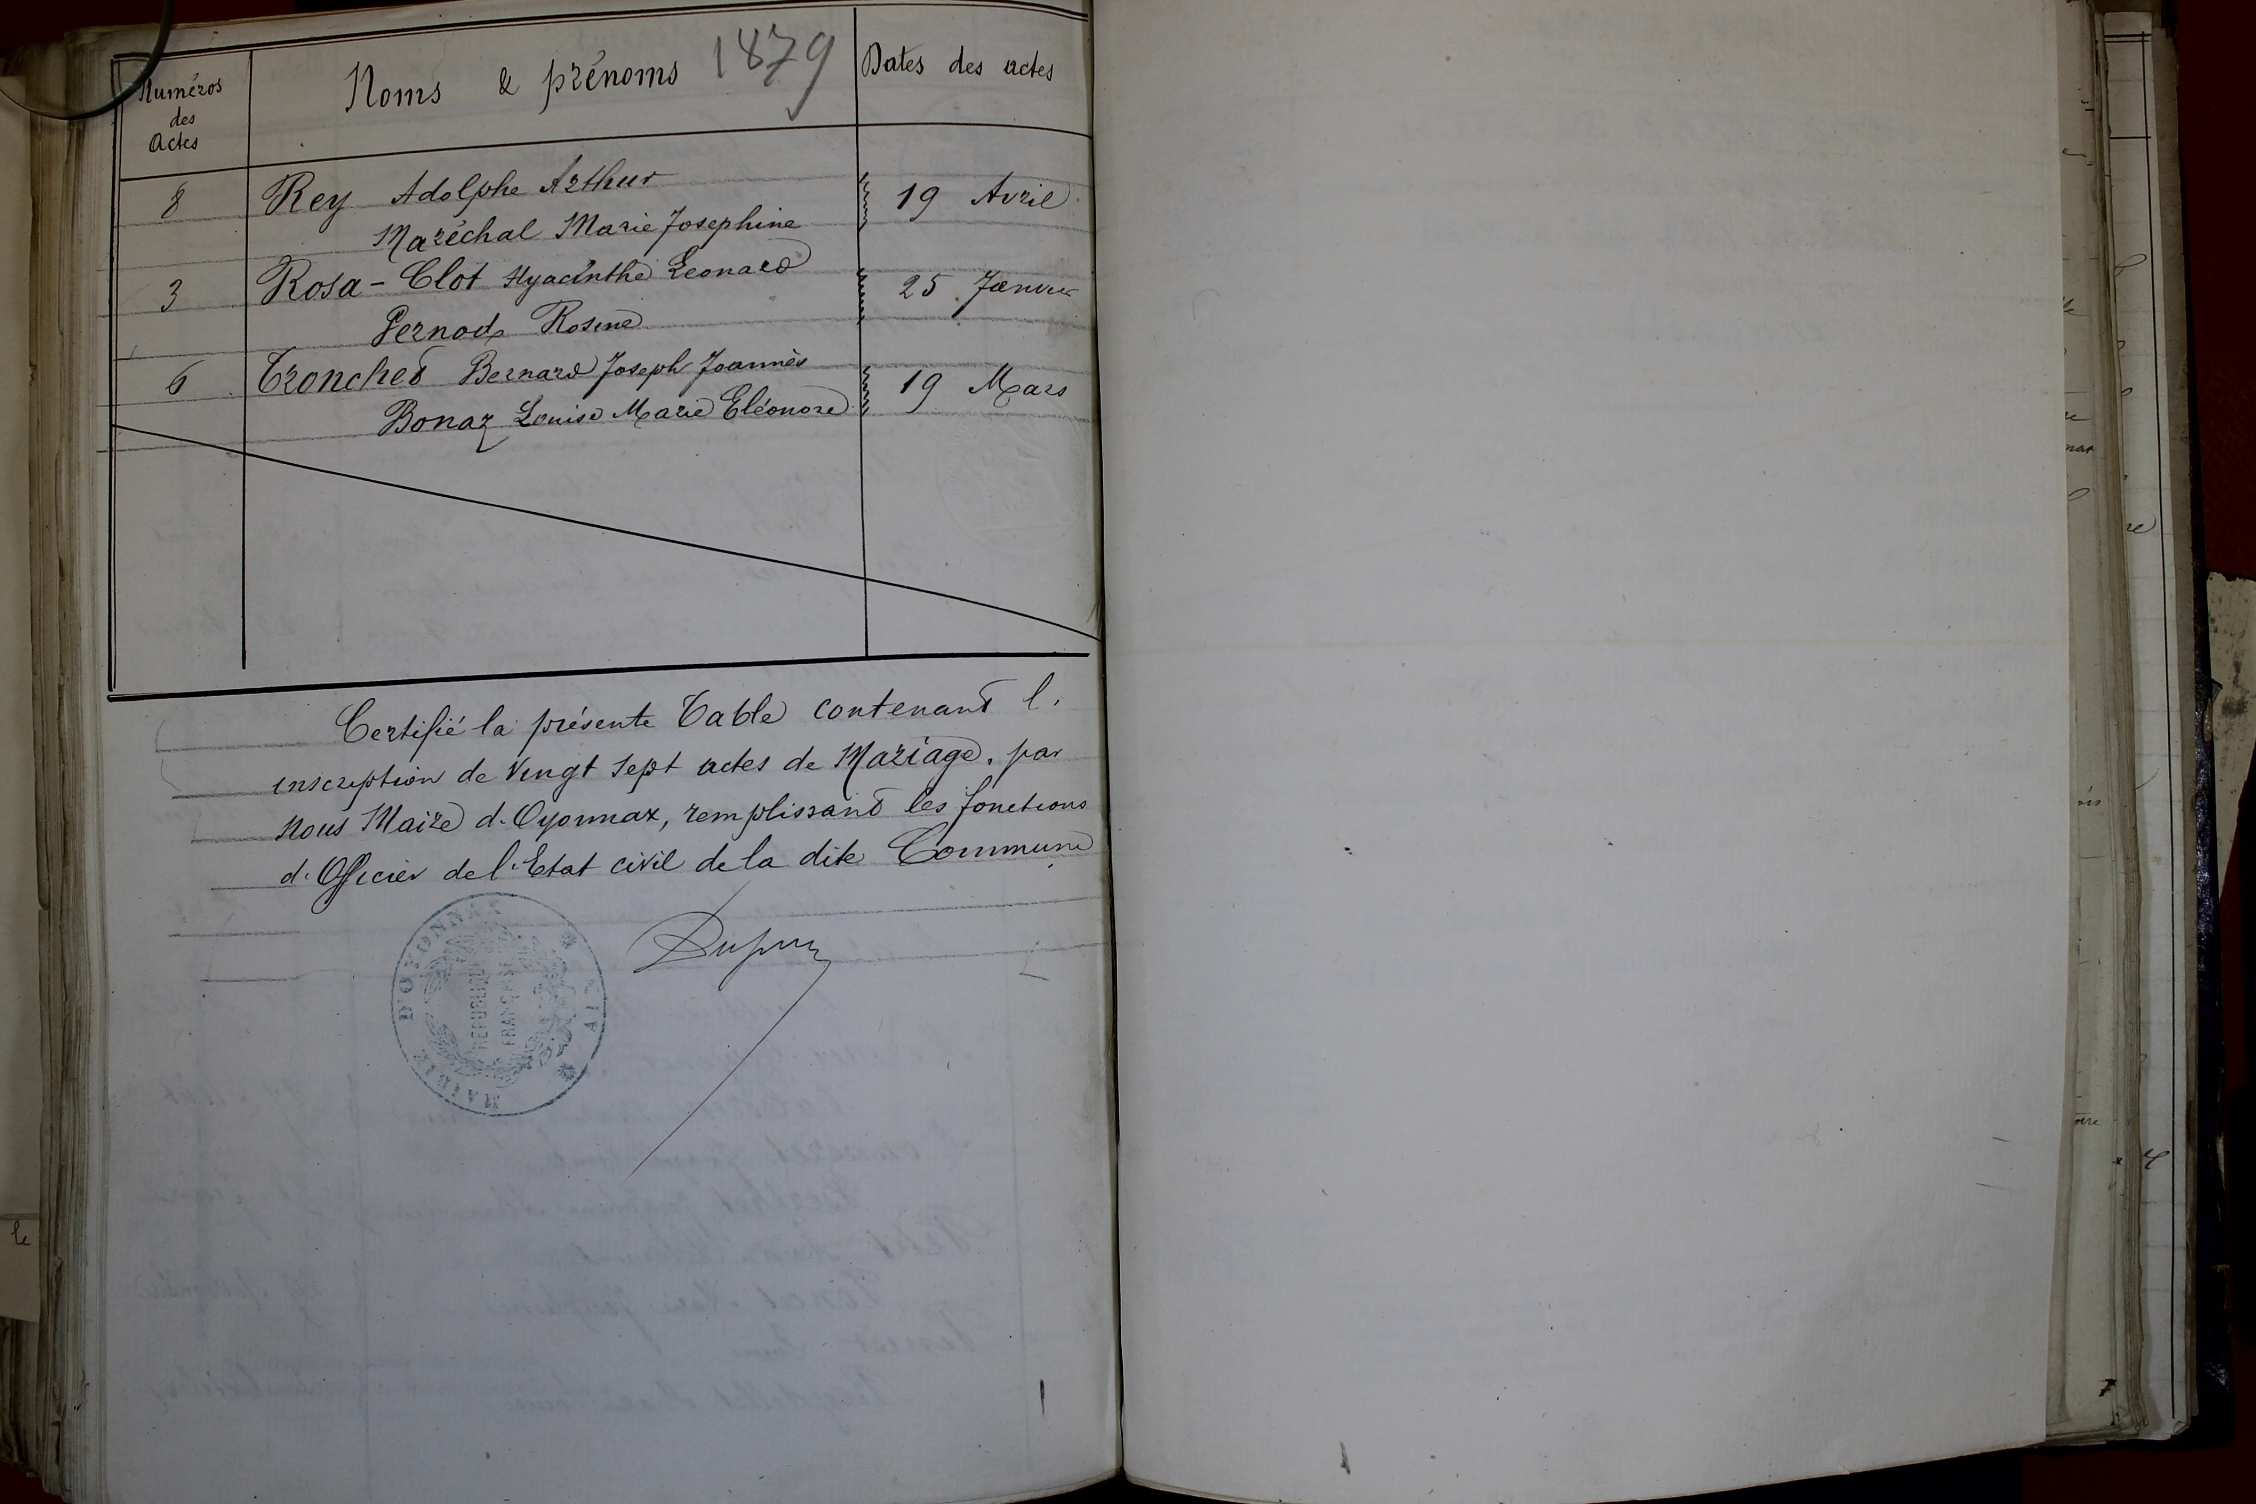 1879
Numéros des Actes
Noms & prénoms
Dates des actes
8 Rey Adolphe Arthur 19 Avril
Maréchal Marie Josephine
3 Rosa-Clot Hyacinthe Leonard 25 Janvier
Pernod Rosine
6 Tronchet Bernard Joseph Joannès 19 Mars
Bonaz Louise Marie Eléonore
Certifié la présente Table contenant l'
inscription de Vingt sept actes de Mariage, par
Nous Maire d'Oyonnax, remplissant les fonctions
d'Officier de l'Etat civil de la dite Commune
MAIRIE D'OYONNAX
AIN
REPUBLIQUE
FRANÇAISE